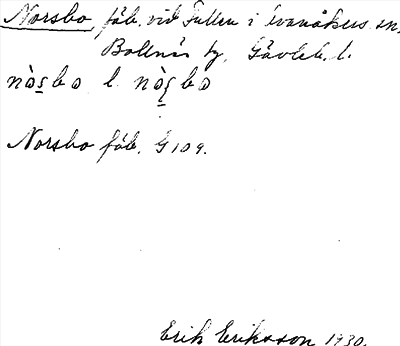 Norsbo fäb. vid Tullen i Svanåkers sn,
Bollnäs tg, Gävleb. l.
nòs̲bo l. nòʂbo
Norsbo fäb. G 109.
Erik Eriksson 1930.